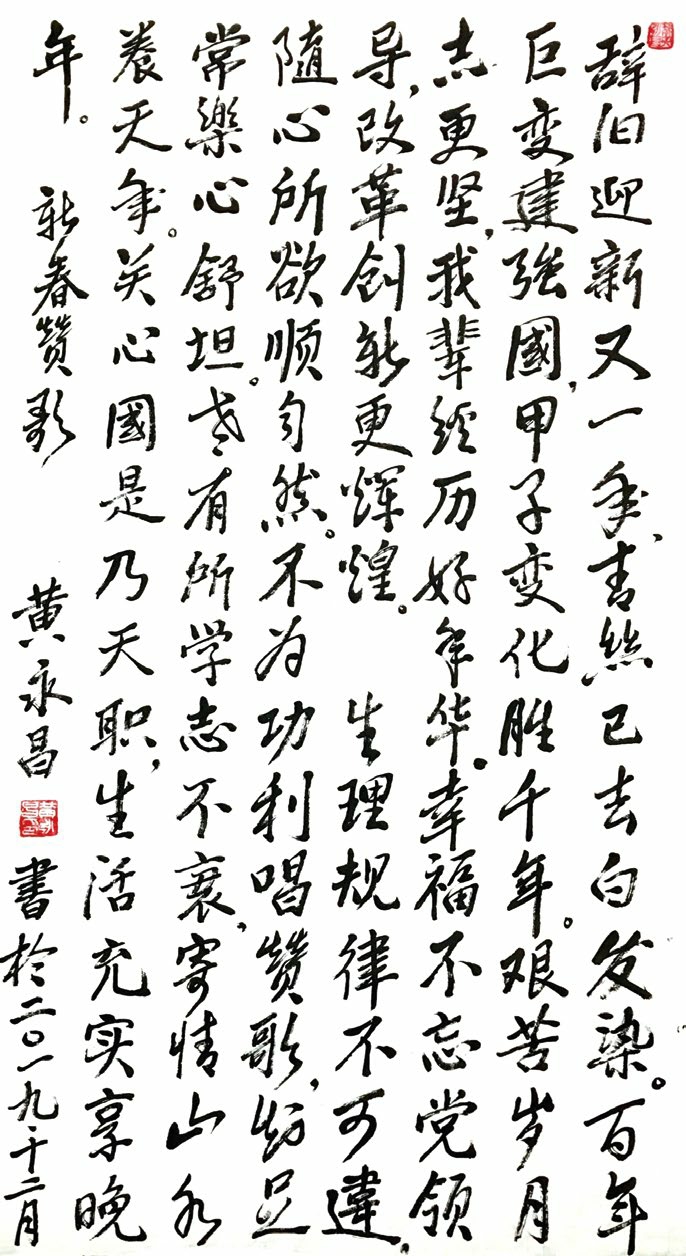 辞旧迎新又一年,青絲已去白发染。百年
巨变建強國,甲子变化胜千年。艰苦岁月
志更坚,我辈经历好年华。幸福不忘党领
导,改革创新更煇煌。 生理规律不可違,
隨心所欲顺自然。不为功利唱赞歌,知足
常樂心舒坦。老有所学志不衰,寄情山水
養天年。关心國是乃天职,生活充实享晚
年。 新春赞歌 黄永昌 書於二〇一九、十二月